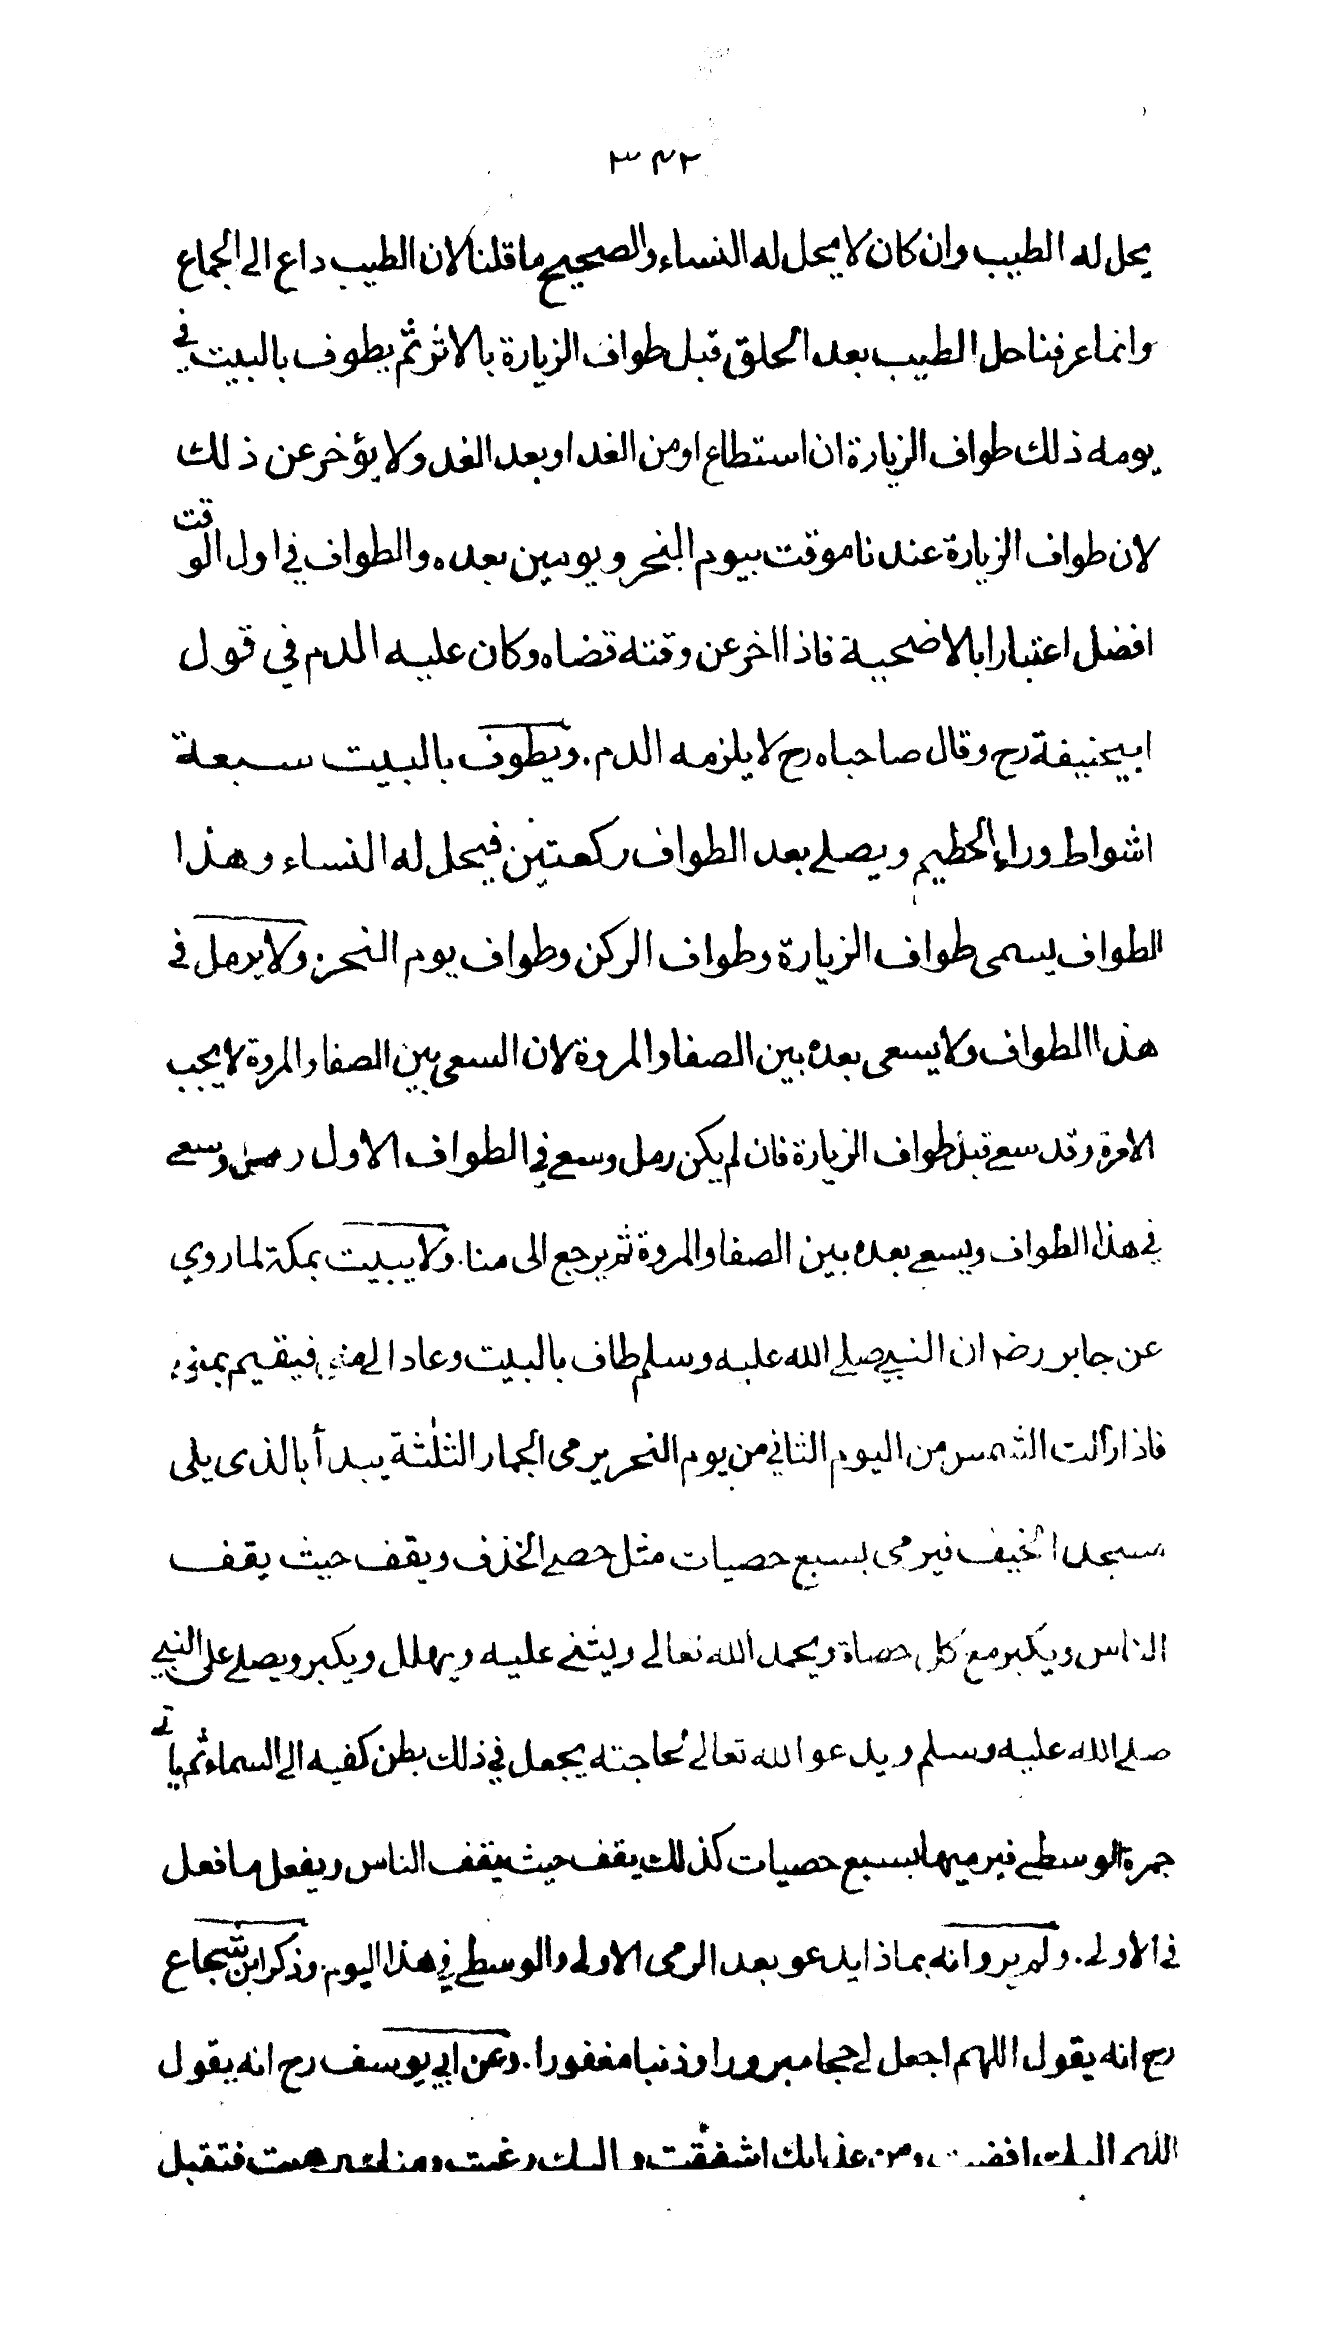 ٣٤٢
يحل له الطيب وان كان لا يحل له النساء والصحيح ما قلنا لان الطيب داع الى الجماع
وانما عرفنا حل الطيب بعد الحلق قبل طواف الزيارة بالاثر ثم يطوف بالبيت في
يومه ذلك طواف الزيارة ان استطاع او من الغد او بعد الغد ولا يؤخر عن ذلك
لان طواف الزيارة عندنا موقت بيوم النحر ويومين بعده والطواف في اول الوقت
افضل اعتبارا بالاضحية فاذا اخر عن وقته قضاه وكان عليه الدم في قول
ابيحنيفة رح وقال صاحباه رح لا يلزمه الدم. ويطوف بالبيت سبعة
اشواط وراء الحطيم ويصلے بعد الطواف ركعتين فيحل له النساء وهذا
الطواف يسمى طواف الزيارة وطواف الركن وطواف يوم النحر. ولا يرمل في
هذا الطواف ولا يسعى بعده بين الصفا والمروة لان السعى بين الصفا والمروة لا يجب
الا مرة وقد سعے قبل طواف الزيارة فان لم يكن رمل وسعے في الطواف الاول رمل وسعے
في هذا الطواف ويسعے بعده بين الصفا والمروة ثم يرجع الى منا. ولا يبيت بمكة لما روي
عن جابر رضہ ان النبي صلے الله عليه وسلم طاف بالبيت وعاد الے منى فيقيم بمنى
فاذا زالت الشمس من اليوم الثاني من يوم النحر يرمى الجمار الثلٰثة يبدأ بالذى يلى
مسجد الخيف فيرمى بسبع حصيات مثل حصے الخذف ويقف حيث يقف
الناس ويكبر مع كل حصاة ويحمد الله تعالى ويثنے عليه ويهلل ويكبر ويصلے على النبي
صلے الله عليه وسلم ويدعو الله تعالى لحاجته يجعل في ذلك بطن كفيه الى السماء ثم ياتے
جمرة الوسطے فيرميها بسبع حصيات كذلك يقف حيث يقف الناس ويفعل ما فعل
في الاولے. ولم يروا نه بماذا يدعو بعد الرمى الاولے والوسطے في هذا اليوم. وذكر ابن شجاع
رح انه يقول اللهم اجعل لے حجا مبرورا وذنبا مغفورا. وعن ابي يوسف رح انه يقول
اللهم اليك افضت ومن عذابك اشفقت واليك رغبت ومنك رهبت فتقبل